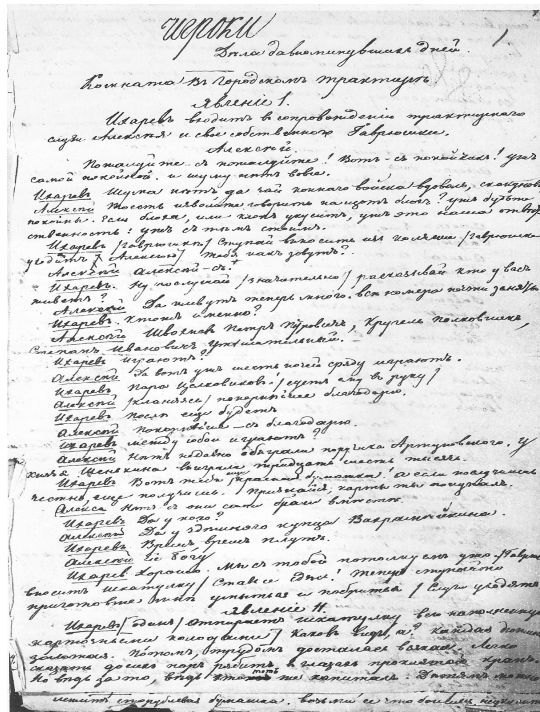 Игроки
1.
Дѣла давноминувшихъ дней.
Комната въ городскомъ трактирѣ
Явленіе 1.
Ихаревъ входитъ въ сопровожденіи трактирнаго
слуги Алексѣя и своего собственнаго Гаврюшки.
Алексѣй.
Пожалуйте-съ пожалуйте! Вотъ-съ покойчикъ! ужъ
самой покойной. и шуму нѣтъ вовсе.
Ихаревъ Шума нѣтъ да чай коннаго войска вдоволь, скакуновъ
Алексѣй То есть изволите говорить насчетъ блохъ? ужъ будьте
покойны. Если блоха, или клопъ укуситъ, ужъ это наша отвѣт-
ственность: ужъ съ тѣмъ стоимъ.
Ихаревъ /Гаврюшкѣ/ Ступай выносить изъ коляски /Гаврюшка
уходитъ/ /Алексѣю/ Тебя какъ зовутъ?
Алексѣй Алексѣй-съ.
Ихаревъ. Ну послушай /значительно/ разсказывай кто у васъ
живетъ?
Алексѣй Да живутъ теперь много. всѣ номера почти заняты
Ихаревъ. Кто же именно?
Алексѣй Швохневъ Петръ Петровичъ, Кругель Полковникъ,
Степанъ Ивановичъ Утѣшительный.
Ихаревъ Играютъ?
Алексѣй Да вотъ ужъ шесть ночей сряду играютъ.
Ихаревъ Пара целковиковъ! /суетъ ему въ руку/
Алексѣй /кланяясь/ покорнѣйше благодарю.
Ихаревъ Послѣ еще будетъ
Алексѣй Покорнѣйше-съ благодарю.
Ихаревъ между собой играютъ?
Алексѣй Нѣтъ недавно обыграли поручика Артуновскаго, у
князя Шенькина выиграли тридцать шесть тысячъ.
Ихаревъ Вотъ тебѣ /красная бумажка! а если послужишь
честно, еще получишь. Признайся, карты ты покупалъ.
Алексѣй Нѣтъ съ они сами брали вмѣстѣ.
Ихаревъ Да у кого?
Алексѣй Да у здѣшняго купца Вахрамейкина.
Ихаревъ Врешь врешь плутъ.
Алексѣй Ей Богу
Ихаревъ Хорошо. Мы съ тобой потолкуемъ ужо. /Гаврюшка
вноситъ шкатулку/ Ставь ее здѣсь! Теперь ступайте
приготовьте мнѣ умыться и побриться /Слуги уходятъ
Явленіе II.
Ихаревъ /одинъ/ отпираетъ шкатулку всю наполненную
карточными колодами/ Каковъ видъ, а? каждая дюжина
золотая. Потомъ, трудомъ досталась всякая. Легко
сказать до сихъ поръ рябитъ въ глазахъ проклятой крапъ.
Но вѣдь за то, вѣдь это тотъ же капиталъ. Дѣтямъ можно
лежитъ сторублевая бумажка.